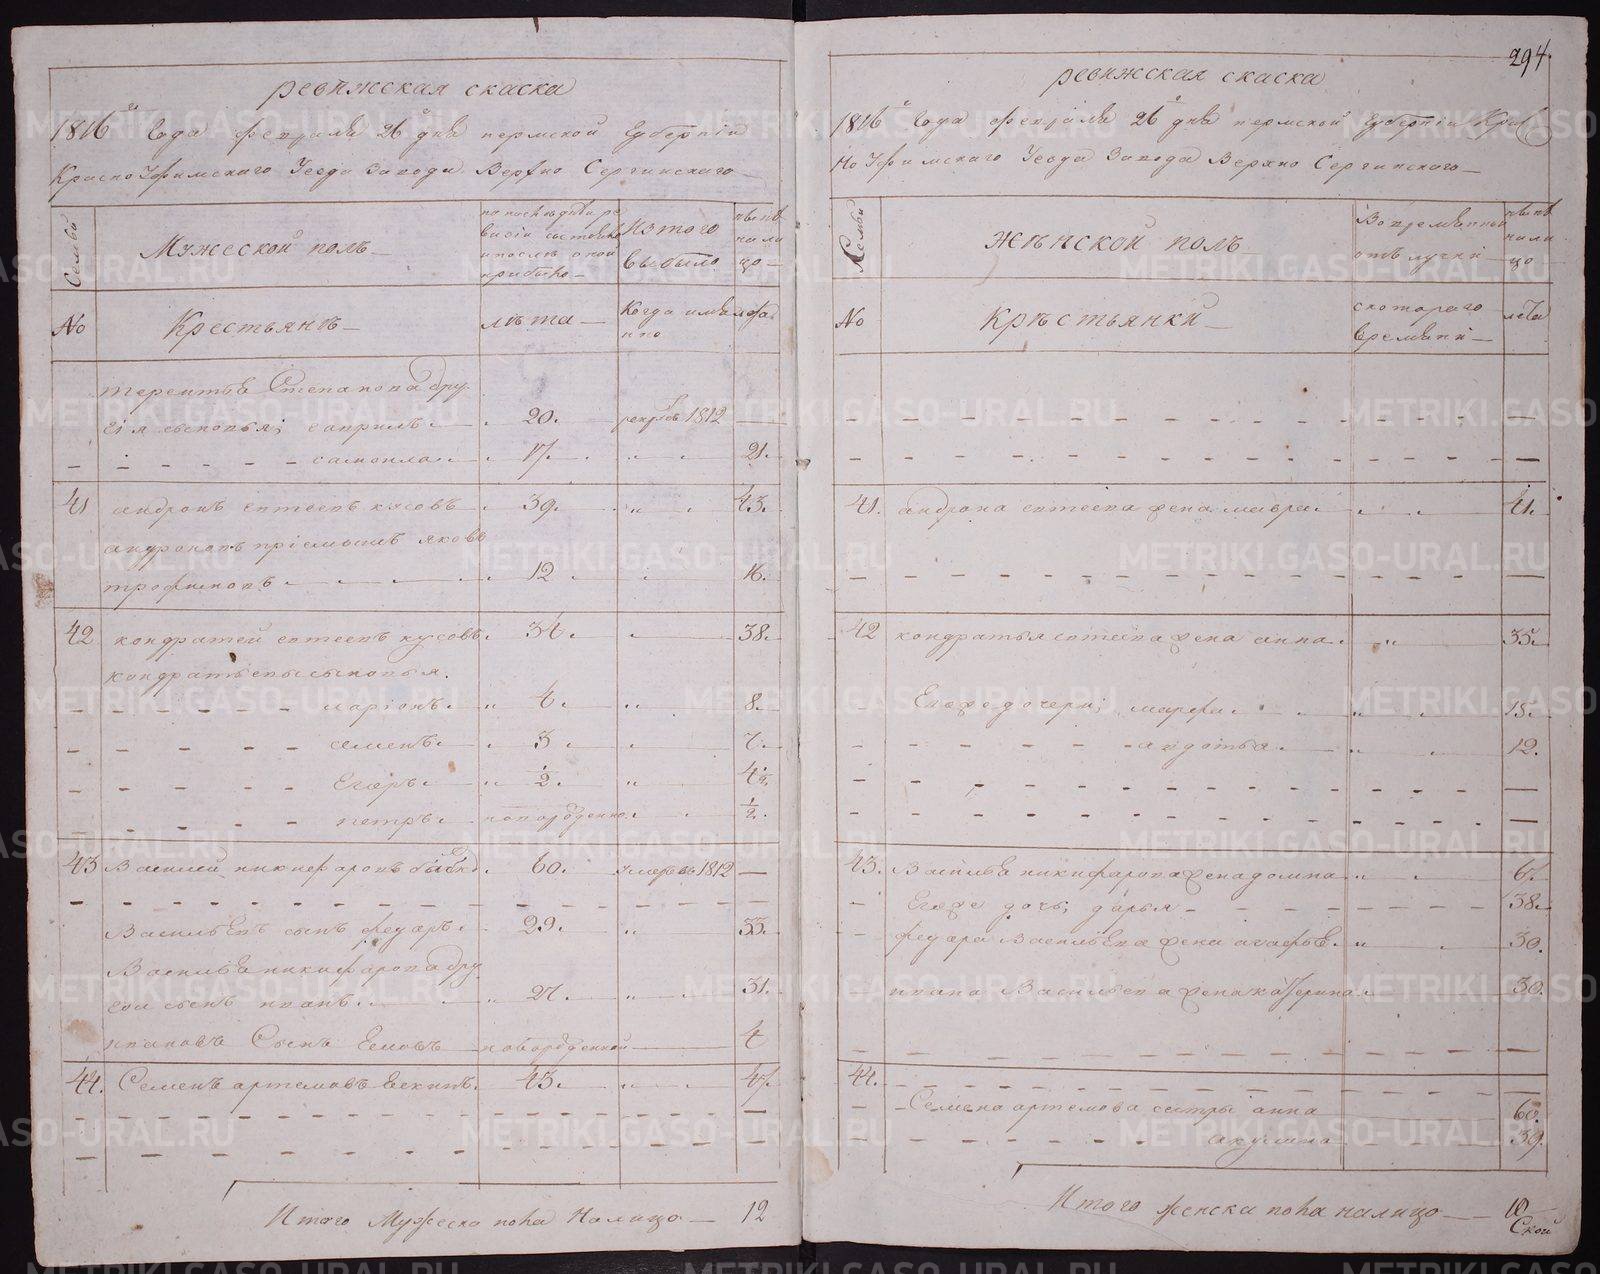 ревижская скаска
1816го года февраля 26го дня пермской Губернiи
Красно Уфимскаго Уезда Завода Верхно Сергинскаго
Семьи
Мужеской полъ
по последней ре
визiи состояло
и после оной
прибыло
Изъ того
выбыло
ныне
на ли
цо
No
Крестьянъ
лѣта
Когда имян
но
лѣта
терентья Степанова дру
гiя сыновья; гаврилъ 20. рекрутъ 1812
самойла 17. 21.
41 андронъ евтеевъ кусовъ 39. 43.
андроновъ прiемышъ яковъ
трофимовъ 12 16.
42 кондратей евтеевъ кусовъ 34. 38.
кондратьевы сыновья.
ларiонъ 4. 8.
семенъ 3 7.
Егоръ 1/2. 4 1/2.
петръ новорожденной 1/2.
43 Василей никифаровъ 60. умеръ въ 1812
Васильевъ сынъ федаръ 29. 33.
Василья никифарова дру
гой сынъ иванъ 27. 31.
ивановъ Сынъ новорожденной 4
44. Семенъ артемовъ 43. 47.
Итого Мужеска пола Налицо 12
294.
ревижская скаска
1816го года февраля 26го дня пермской Губернiи Крас
но Уфимскаго Уезда Завода Верхно Сергинскаго
Семьи
Женской полъ
Во временной
отлучки
ныне
на ли
цо
No
Крѣстьянки
с котораго
времяни
лета
41. андрона евтеева жена мавра 41.
42 кондратья евтеева жена анна 35.
Егоже дочери; марфа 15.
авдотья 12.
43. Василья никифарова жена домна 67.
Егоже дочь дарья 38.
федара Васильева жена агафья 30.
ивана Васильева жена катерина 30.
44.
Семена артемова сестры анна 60.
акулина 39.
Итого женска пола налицо 10
Ской
METRIKI.GASO-URAL.RU